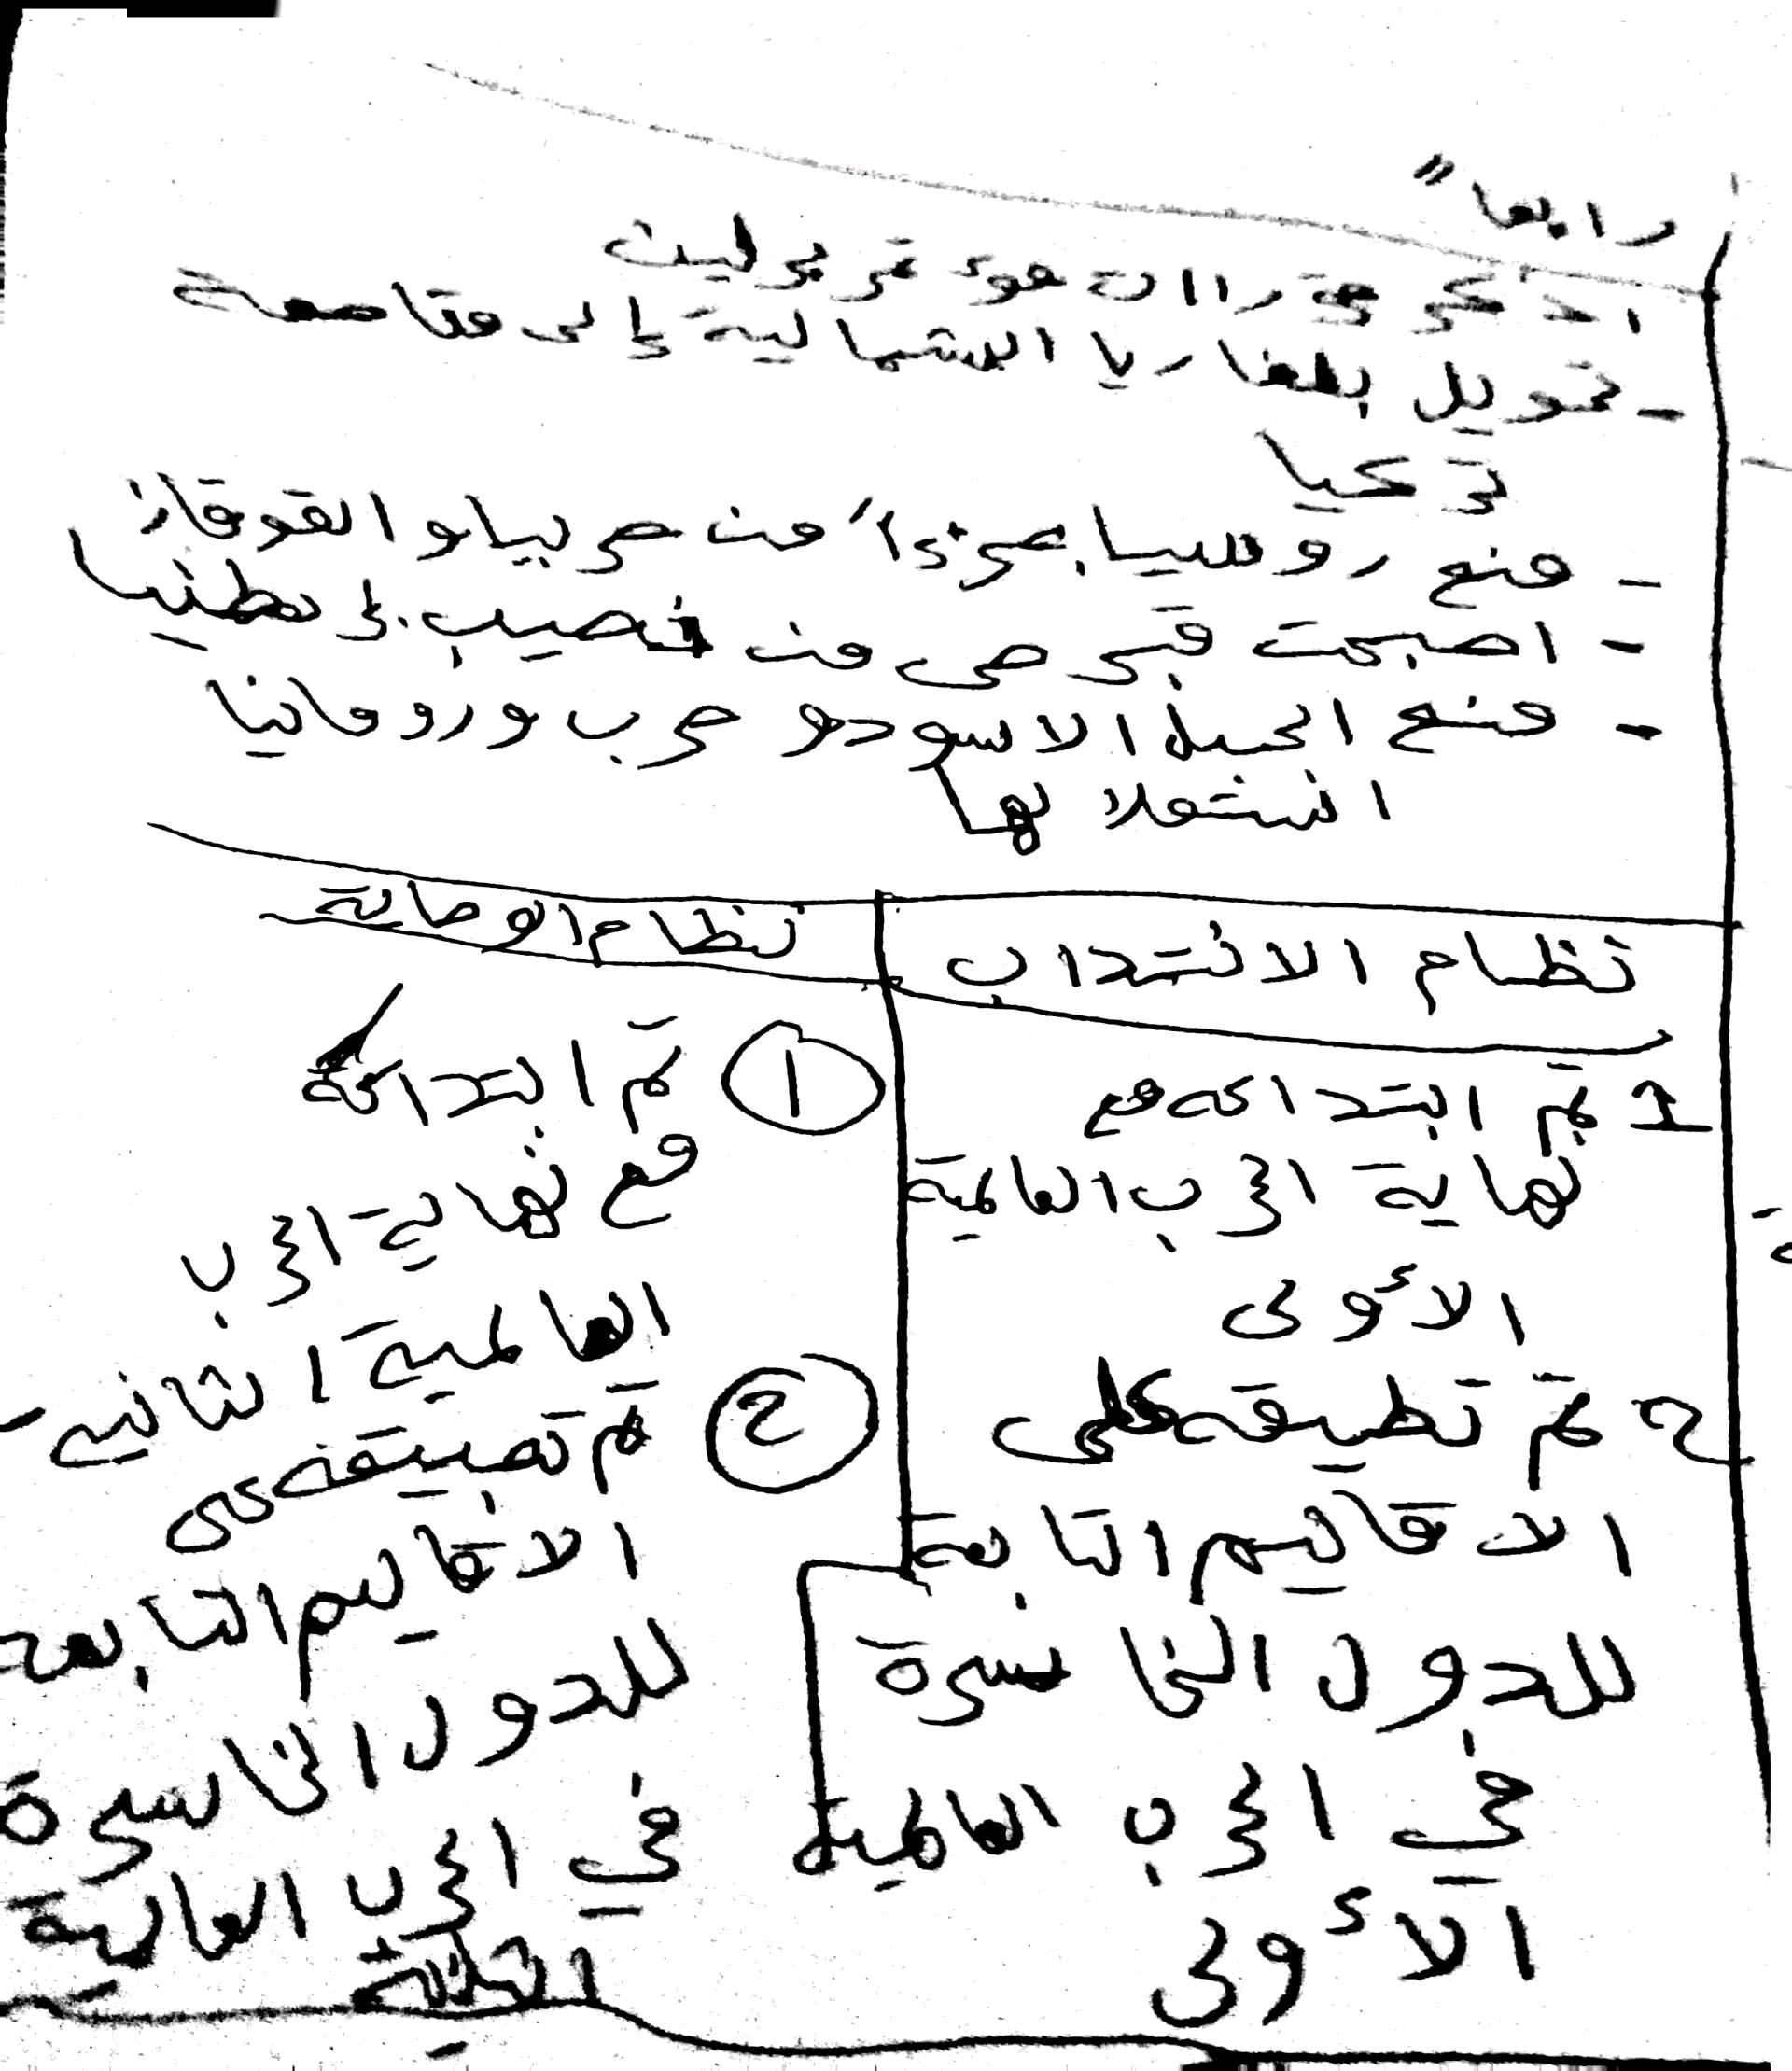 رابعا"
اذكر قرارات مؤتمر برلين
- تحويل بلغاريا الشمالية إلى مقاطعة
تركيا
- منع روسيا جزءا من صربيا و القوقاز
- اصبحت قبرص من نصيب بريطانيا
- منع الجبل الاسود و صرب ورومانيا
استقلالها
نظام الانتداب
1 تم ابتدائه مع
نهاية الحرب العالمية
الأولى
2 تم تطبيقه على
الاقاليم التابعة
للدول الخاسرة
في الحرب العالمية
الأولى
نظام الوصاية
1 تم ابتدائه
مع نهاية الحرب
العالمية الثانية
2 تم تطبيقه على
الاقاليم التابعة
للدول الخاسرة
في الحرب العالمية
الثانية